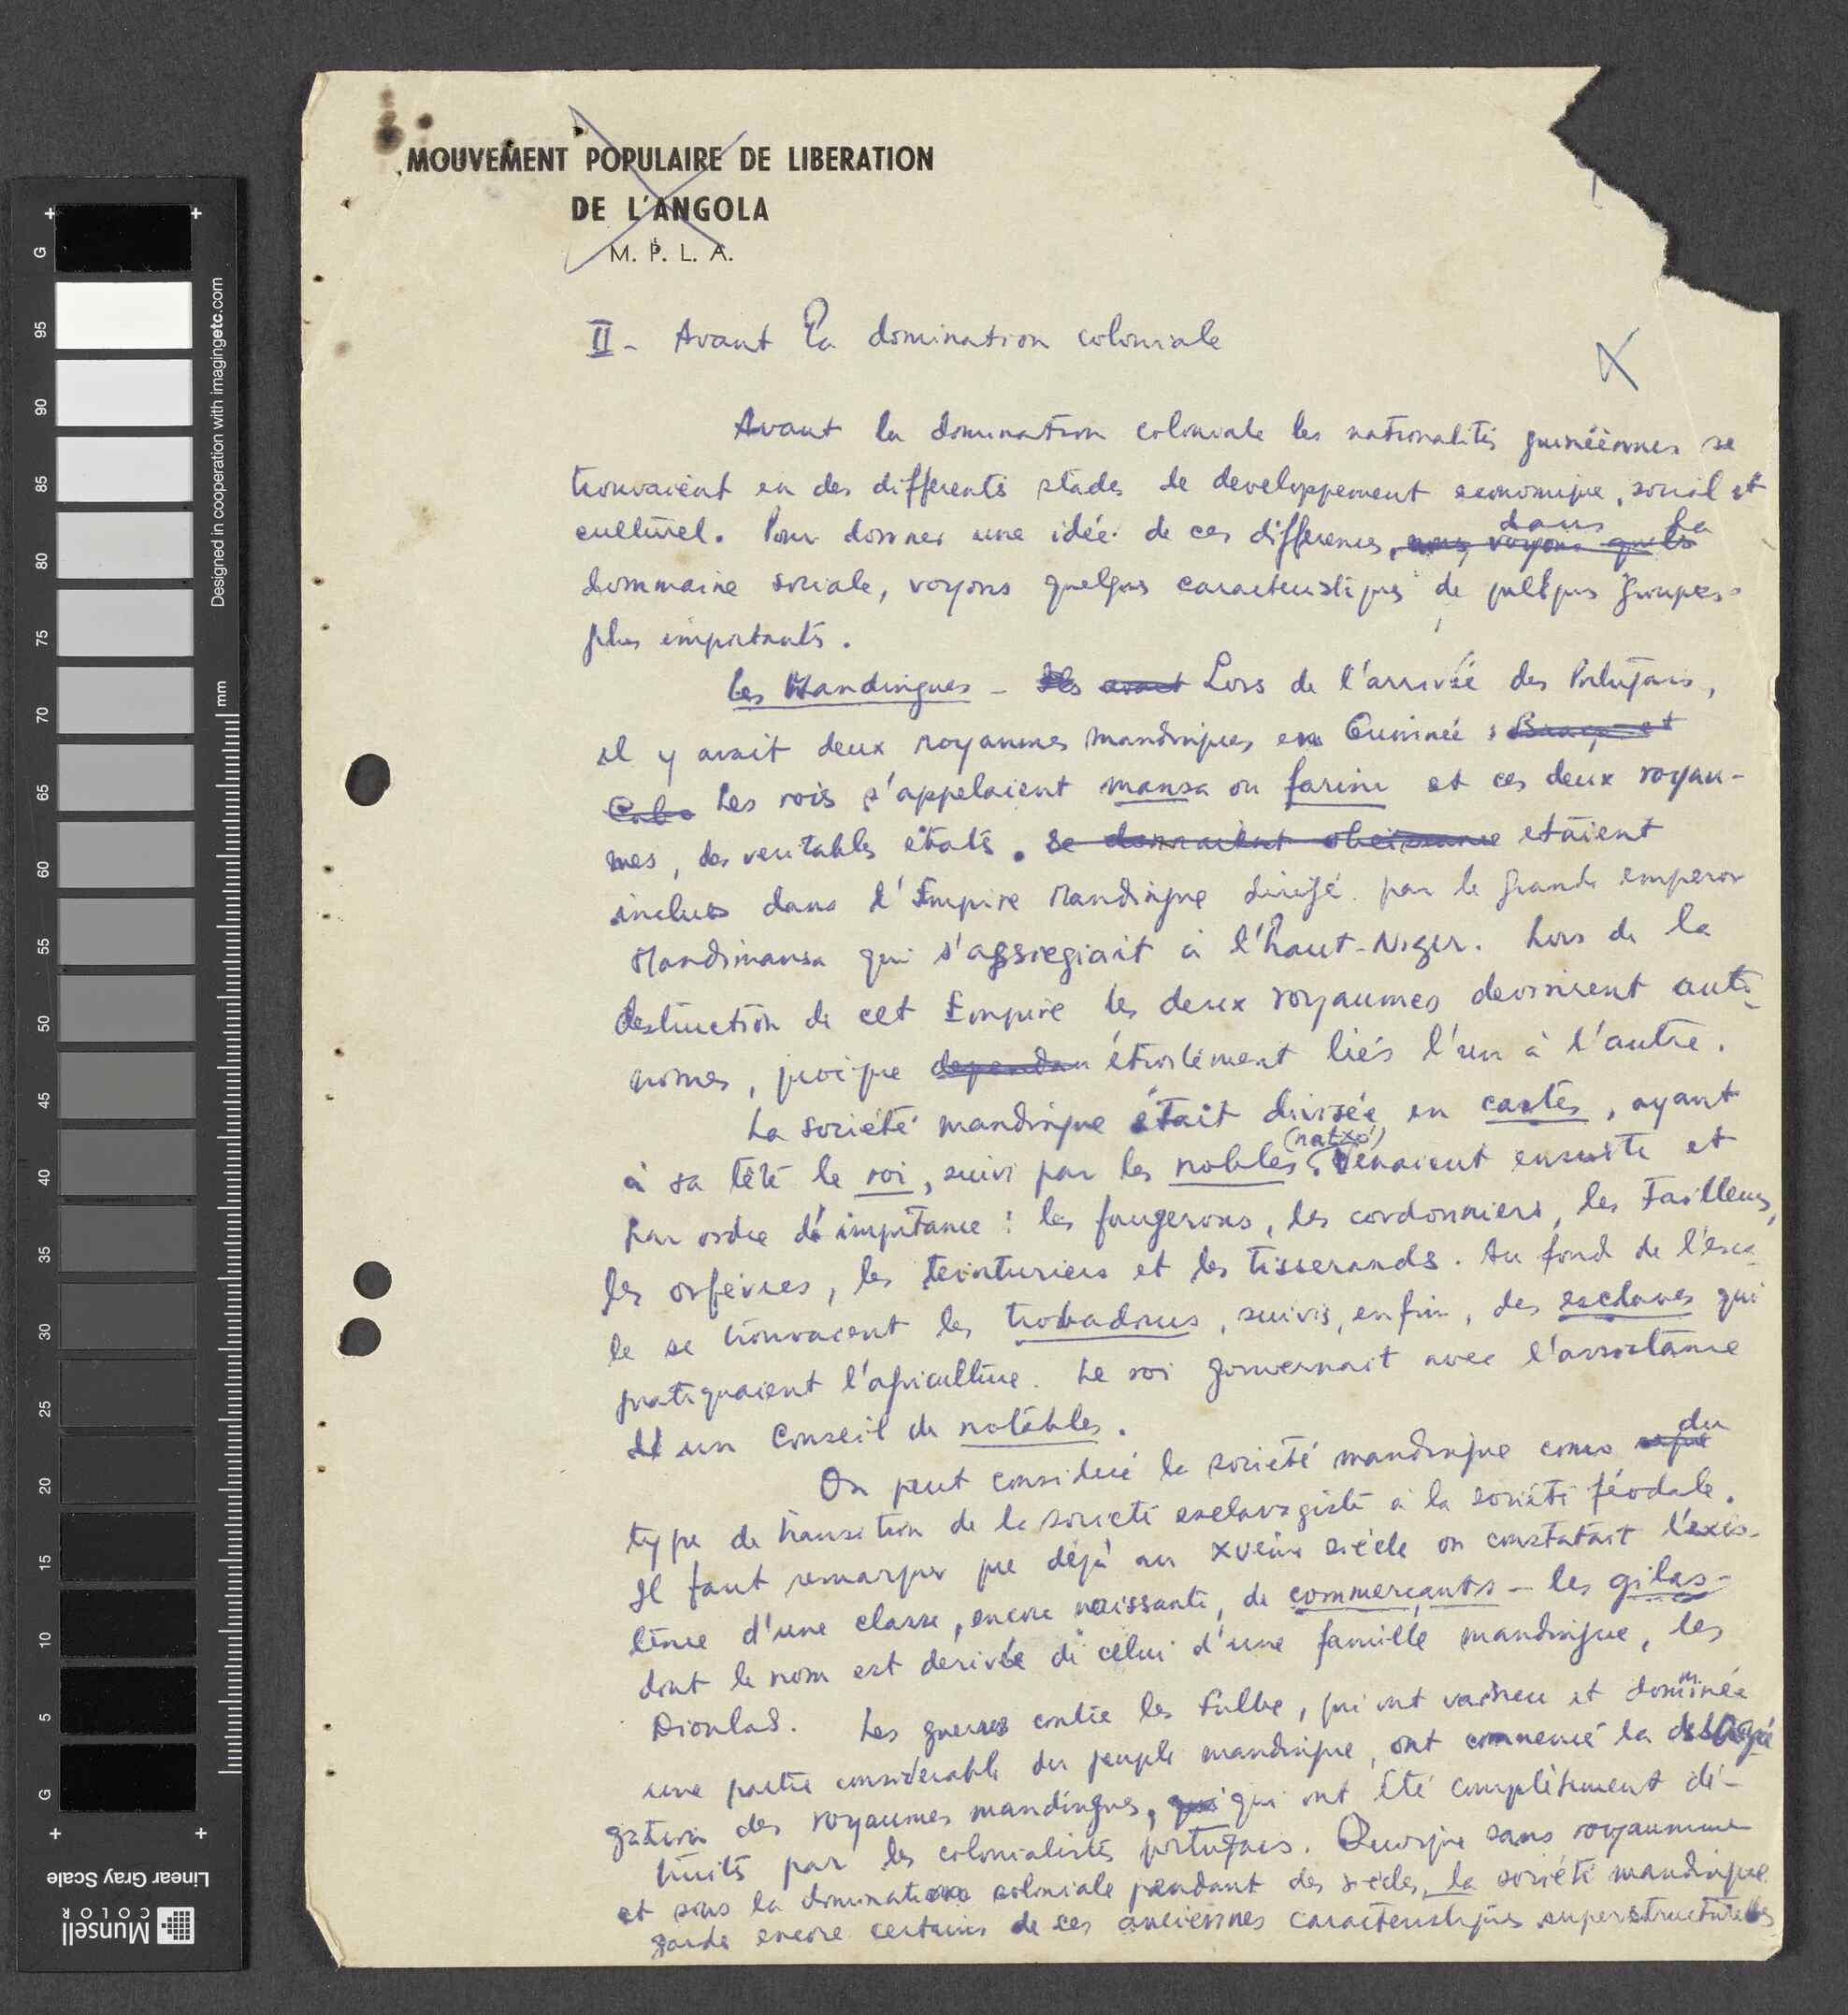 MOUVEMENT POPULAIRE DE LIBERATION
DE L'ANGOLA
M. P. L. A.
II - Avant la domination coloniale
Avant la domination coloniale les nationalités guinéènnes se
trouvaient en des differents stades de developpement economique, social et
culturel. Pour donner une idée de ces differences, nous voyons quels dans la
dommaine sociale, voyons quelques caracteristiques de quelques groupes
plus importants.
Les Mandingues - Ils avant Lors de l'arrivée des Portugais,
il y avait deux royaumes mandingues en Guinnée : Braço et
Cabo Les rois s'appelaient mansa ou farim et ces deux royau-
mes, des veritables états. se donnaient obeissance etaient
inclues dans l'Empire Mandingue dirigé par le grande emperor
Mandimansa qui s'assiegiait à l'haut-Niger. Lors de la
destruction de cet Empire les deux royaumes devinrent auto-
nomes, quoique dependan étroitement liés l'un à l'autre.
La société mandingue était divisée en castes, ayant
à sa tête le roi, suivi par les nobles (natxo). Venaient ensuite et
par ordre d'importance : les fougerons, les cordonniers, les tailleurs,
les orfèvres, les teinturiers et les tisserands. Au fond de l'esca-
le se trouvaient les trobadours, suivis, enfin, des esclaves qui
pratiquaient l'agriculture. Le roi gouvernait avec l'assistance
d'un Conseil de notables.
On peut considéré la société mandingue como du
type de transition de la société esclavagiste à la société féodale.
Il faut remarquer que déjà au XVème siécle on constatait l'exis-
tence d'une classe, encore naissante, de commerçants - les gilas -
dont le nom est derivée de celui d'une famille mandingue, les
Dioulas. Les guerres contre les Fulbe, qui ont vaincu et dominée
une partie considerable du peuple mandingue, ont commencé la
gation des royaumes mandingues, qui qui ont été complètement dé-
truits par les colonialistes portugais. Quoique sans royaumme
et sous la domination coloniale pendant des siècles, la société mandingue
garde encore certains de ces anciennes caracteristiques superstructurelles